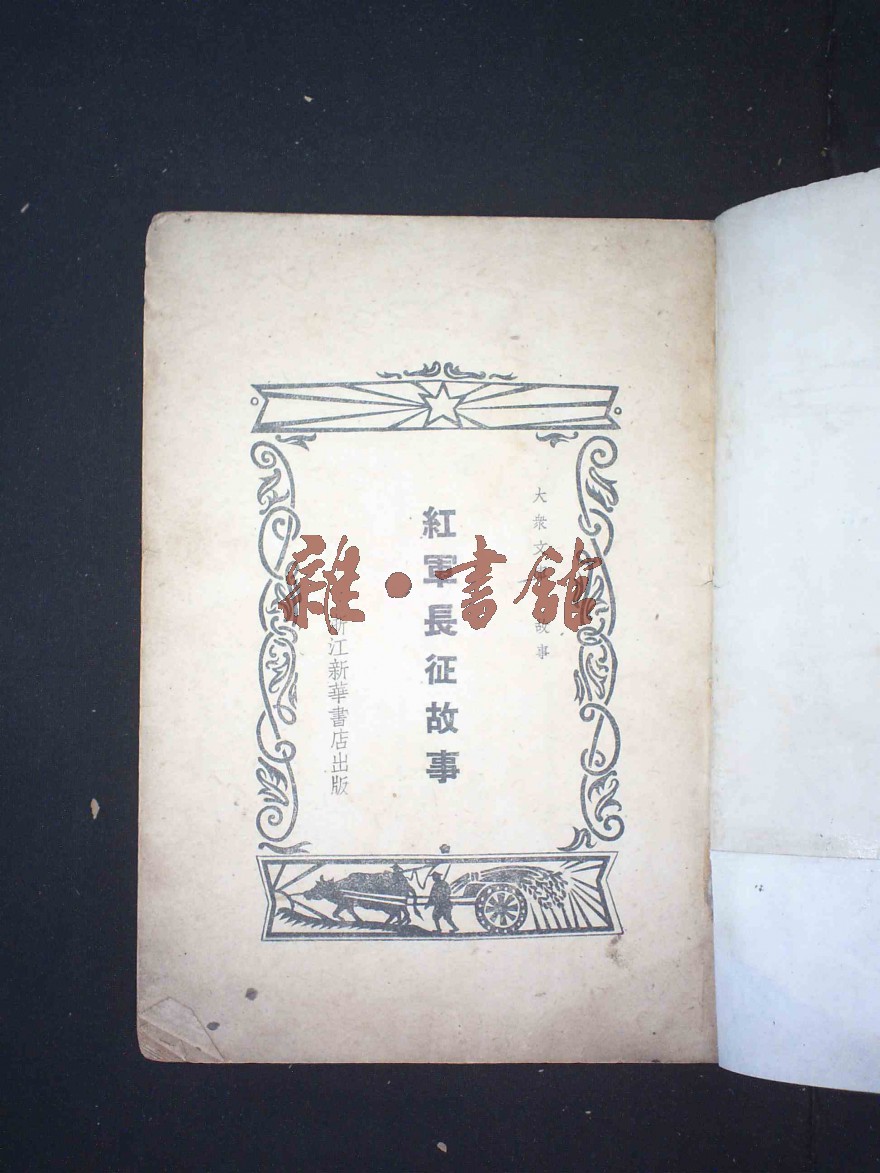 大衆文
故事
紅軍長征故事
浙江新華書店出版
雜·書館